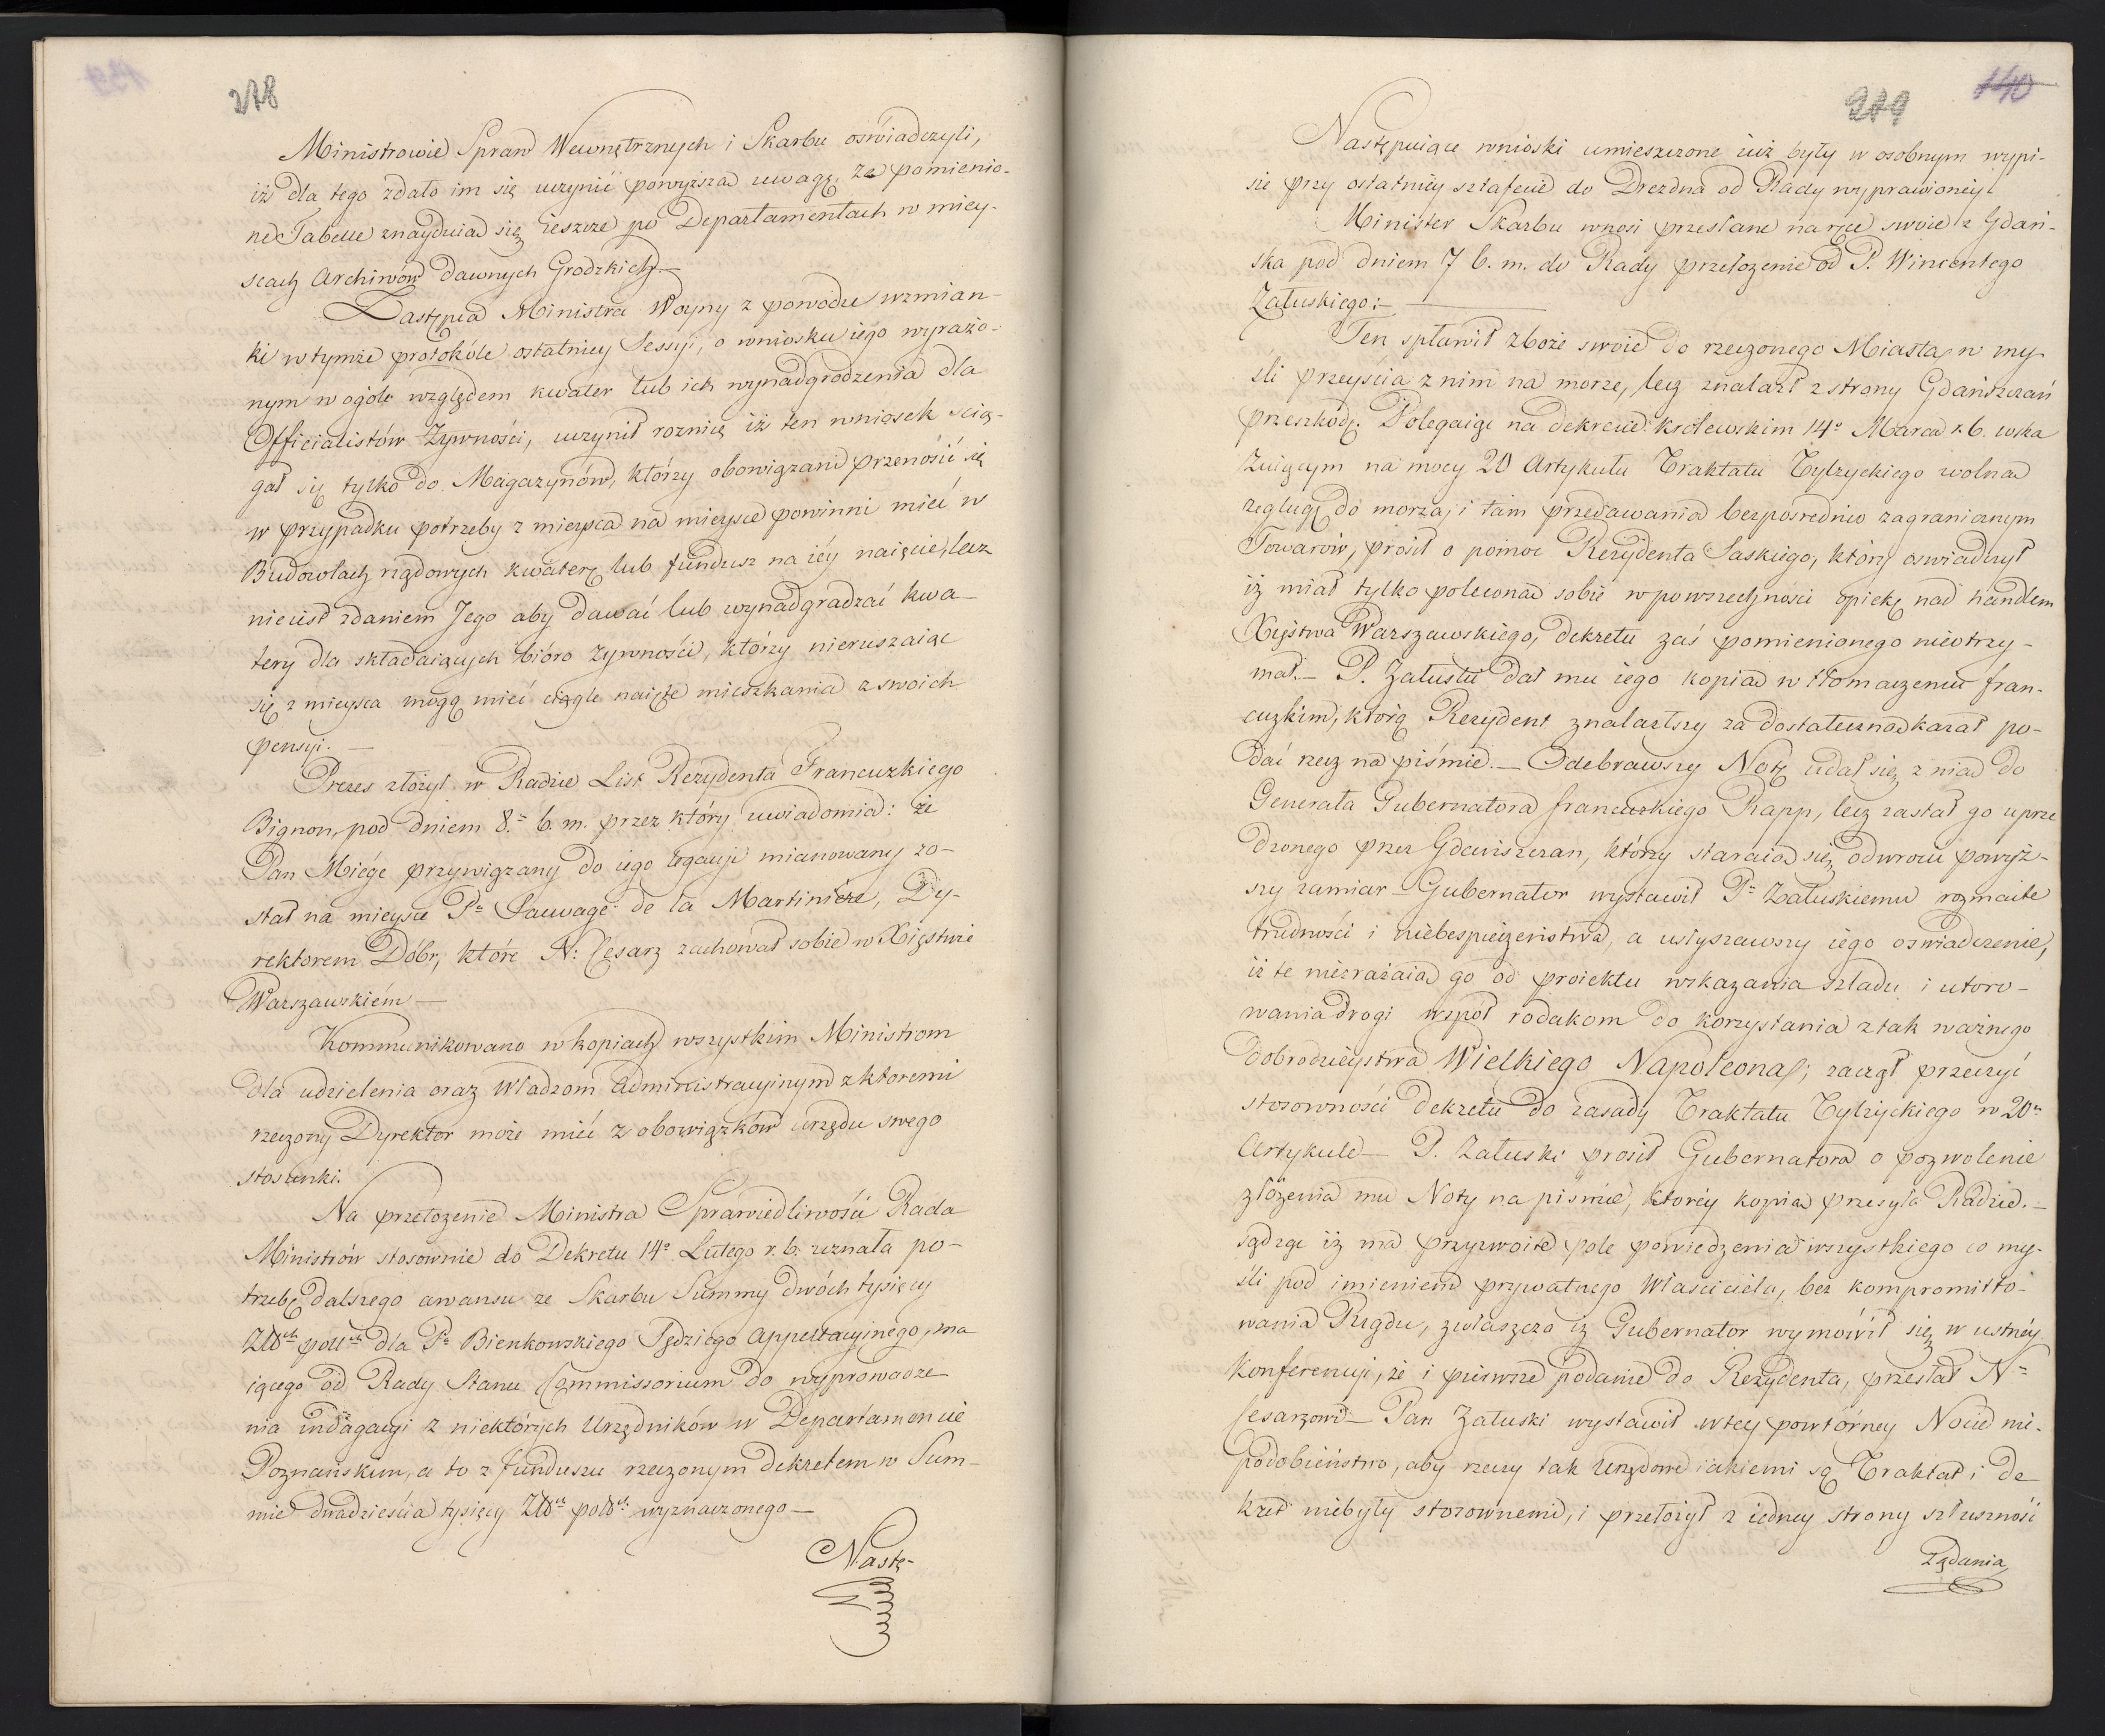 278
Ministrowie Spraw Wewnętrznych i Skarbu oświadczyli,
iż dla tego zdało im się uczynić powyższą uwagę, że pomienio-
ne Tabelle znayduią się ieszcze po Departamentach w miey-
scach Archiwów dawnych Grodzkich.—
Zastępca Ministra Woyny z powodu wzmian-
ki w tymże protokóle ostatniey Sessyi, o wniosku iego wyrażo-
nym w ogóle względem kwater lub ich wynadgrodzenia dla
Officialistów Żywności, uczynił roznicę iż ten wniosek ścią-
gał się tylko do Magazynów, którzy obowiązani przenosić się
w przypadku potrzeby z mieysca na mieysce powinni mieć w
Budowlach rządowych kwaterę lub fundusz na iéy naięcie, lecz
nieiest zdaniem Jego aby dawać lub wynadgradzać kwa-
tery dla składaiących bióro żywności, którzy nieruszaiąc
się z mieysca mogą mieć ciągle naięte mieszkania z swoich
pensyi. —
Prezes złożył w Radzie List Rezydenta Francuzkiego
Bignon, pod dniem 8.º b. m. przez który uwiadomia: że
Pan Miége przywiązany do iego legacyi mianowany zo-
stał na mieysce Pª Sauvage de la Martiniére, Dy-
rektorem Dóbr, które N: Cesarz zachował sobie w Xięstwie
Warszawskiém —
Kommunikowano w kopiach wszystkim Ministrom
dla udzielenia oraz Władzom administracyinym z ktoremi
rzeczony Dyrektor może mieć z obowiązków urzędu swego
stosunki.
Na przełożenie Ministra Sprawiedliwości Rada
Ministrów stosownie do Dekretu 14º Lutego r. b. uznała po-
trzebę dalszego awansu ze Skarbu Summy dwóch tysięcy
Złłch pollch dla Pª Bienkowskiego Sędziego Appellacyinego, ma
iącego od Rady Stanu Commissorium do wyprowadze
nia indagacyi z niektórych Urzędników w Departamencie
Poznańskim, a to z funduszu rzeczonym dekretem w Sum-
mie dwadzieścia tysięcy Złłch pollch wyznaczonego —
Nastę-
140
279
Następuiące wnioski umieszczone iuż były w osobnym wypi-
sie przy ostatniéy sztafecie do Drezdna od Rady wyprawionéy.
Minister Skarbu wnosi przesłane na ręce swoie z Gdań-
ska pod dniem 7 b. m. do Rady przełożenie od P. Wincentego
Załuskiego: —
Ten spławił zboże swoie do rzeczonego Miasta, w my-
śli przeyścia z nim na morze, lecz znalazł z strony Gdańszczan
przeszkodę. Polegaiąc na dekrecie królewskim 14º Marca r. b. wska
zuiącym na mocy 20 Artykułu Traktatu Tylżyckiego wolną
żeglugę do morza, i tam przedawania bezpośrednio zagranicznym
Towarów, prosił o pomoc Rezydenta Saskiego, który oświadczył
iż miał tylko poleconą sobie w powszechności opiekę nad handlem
Xięstwa Warszawskiego, dekretu zaś pomienionego nieotrzy-
mał. — P. Załuski dał mu iego kopią w tłomaczeniu fran-
cuzkim, którą Rezydent znalazłszy za dostateczną kazał po-
dać rzecz na piśmie. — Odebrawszy Notę udał się z nią do
Generała Gubernatora francuzkiego Rapp, lecz zastał go uprze
dzonego przez Gdańszczan, którzy staraią się odwrócić powyż-
szy zamiar — Gubernator wystawił Pª Załuskiemu rozmaite
trudności i niebespieczeństwa, a usłyszawszy iego oświadczenie,
iż te niezrażaią go od proiektu wskazania szladu i utoro-
wania drogi współ rodakom do korzystania z tak ważnego
dobrodzieystwa Wielkiego Napoleona; zaczął przeczyć
stosowności dekretu do zasady Traktatu Tylżyckiego w 20m
Artykule — P. Załuski prosił Gubernatora o pozwolenie
złożenia mu Noty na piśmie, ktoréy kopią przesyła Radzie. —
sądząc iż ma przyzwoite pole powiedzenia wszystkiego co my-
śli pod imieniem prywatnego Właściciela, bez kompromitto-
wania Rządu, zwłaszcza iż Gubernator wymówił się w ustnéy
konferencyi, że i pierwsze podanie do Rezydenta, przesłał N=
Cesarzowi — Pan Załuski wystawił w tey powtórney Nocie nie-
podobieństwo, aby rzeczy tak urzędowe iakiemi są Traktat i De
kret niebyły stosownemi, i przełożył z iedney strony słuszność
Żądania